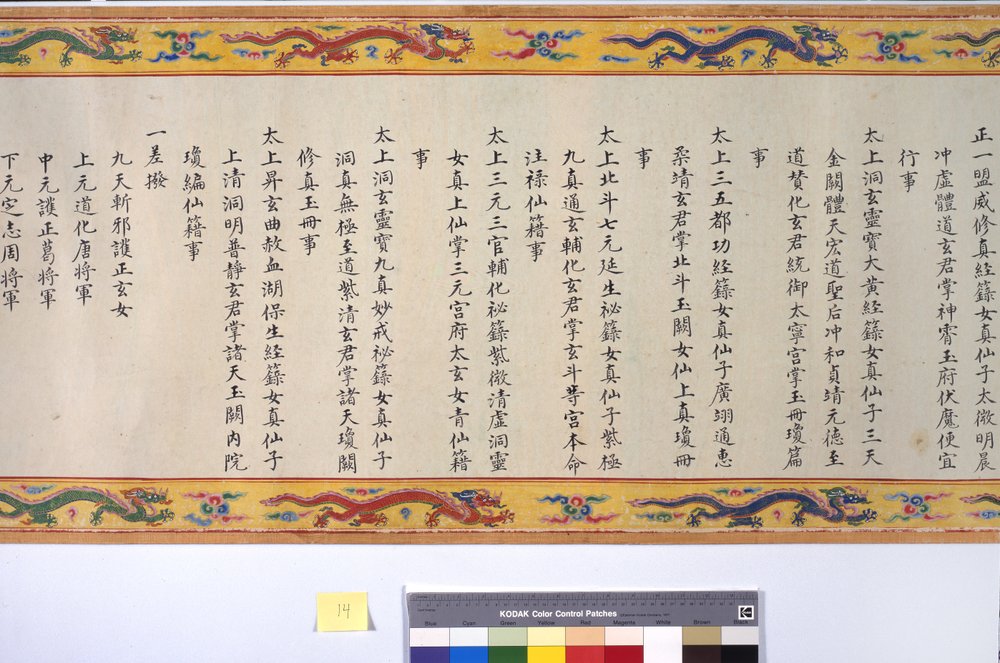 正一盟威修真經籙女真仙子太微明晨
冲虛體道玄君掌神霄玉府伏魔便宜
行事
太上洞玄靈寶大黃經籙女真仙子三天
金闕體天宏道聖后冲和貞靖元德至
道賛化玄君統御太寧宮掌玉冊瓊篇
事
太上三五都功經籙女真仙子廣翊通惠
柔靖玄君掌北斗玉闕女仙上真瓊冊
事
太上北斗七元延生祕籙女真仙子紫極
九真通玄輔化玄君掌玄斗等宮本命
注祿仙籍事
太上三元三官輔化祕籙紫微清虛洞靈
女真上仙掌三元宮府太玄女青仙籍
事
太上洞玄靈寶九真妙戒祕籙女真仙子
洞真無極至道紫清玄君掌諸天瓊闕
修真玉冊事
太上昇玄曲赦血湖保生經籙女真仙子
上清洞明普靜玄君掌諸天玉闕內院
瓊編仙籍事
一差撥
九天斬邪護正玄女
上元道化唐將軍
中元護正葛將軍
下元定志周將軍
14
KODAK Color Control Patches
Blue Cyan Green Yellow Red Magenta White Brown Black
Kodak